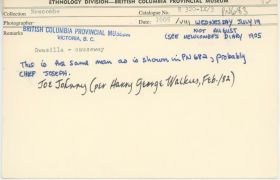 ETHNOLOGY DIVISION—BRITISH COLUMBIA PROVINCIAL MUSEUM
Collection Newcombe Catalogue No. PN683
Photographer Date: 1905 /VIII WEDNESDAY JULY 19
Remarks BRITISH COLUMBIA PROVINCIAL MUSEUM NOT AUGUST
VICTORIA, B. C. (SEE NEWCOMBE'S DIARY 1905
This is the same man as is shown in PN 682, probably
CHIEF JOSEPH.
Joe Johnny (per Harry George Walkus, Feb./82)